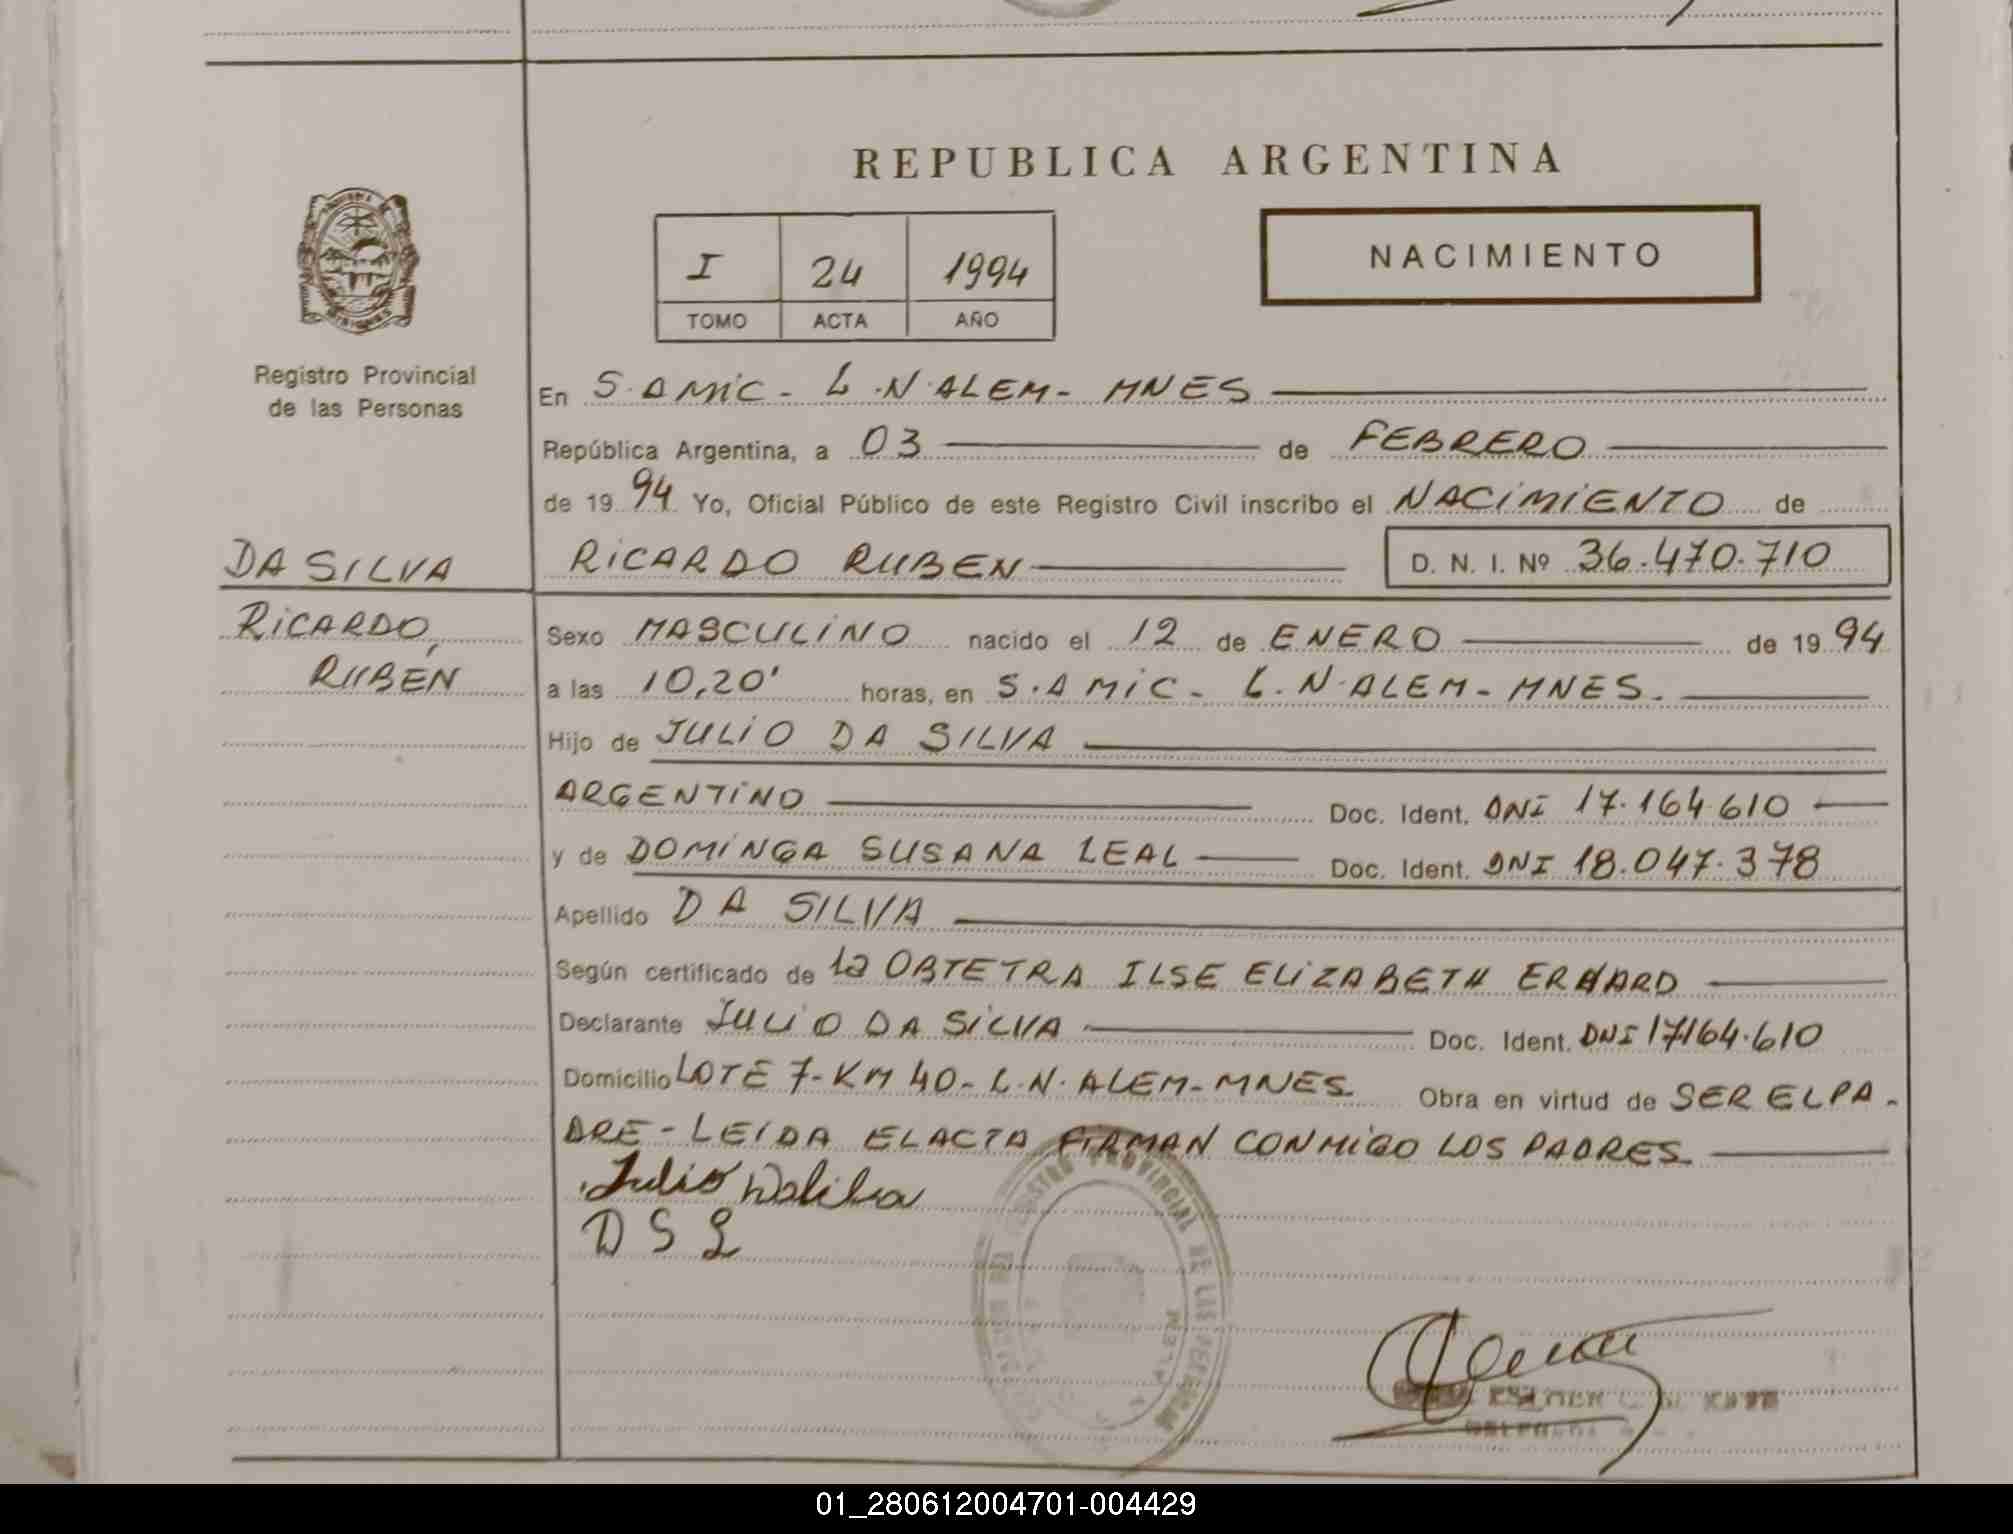 REPUBLICA ARGENTINA
I 24 1994
TOMO ACTA AÑO
NACIMIENTO
Registro Provincial
de las Personas
En S.A MIC - L.N.ALEM - MNES
República Argentina, a 03 de FEBRERO
de 19 94 Yo, Oficial Público de este Registro Civil inscribo el NACIMIENTO de
DA SILVA
RICARDO RUBEN D. N. I. Nº 36.470.710
RICARDO,
RUBEN
Sexo MASCULINO nacido el 12 de ENERO de 19 94
a las 10,20' horas, en S.A MIC - L.N.ALEM - MNES.
Hijo de JULIO DA SILVA
ARGENTINO Doc. Ident. DNI 17.164.610
y de DOMINGA SUSANA LEAL Doc. Ident. DNI 18.047.378
Apellido DA SILVA
Según certificado de la OBTETRA ILSE ELIZABETH ERHARD
Declarante JULIO DA SILVA Doc. Ident. DNI 17164.610
Domicilio LOTE 7-KM 40-L.N.ALEM-MNES Obra en virtud de SER EL PA-
DRE - LEIDA EL ACTA FIRMAN CONMIGO LOS PADRES
Julio
D S L
REGISTRO PROVINCIAL DE LAS PERSONAS
ALEM
01_280612004701-004429